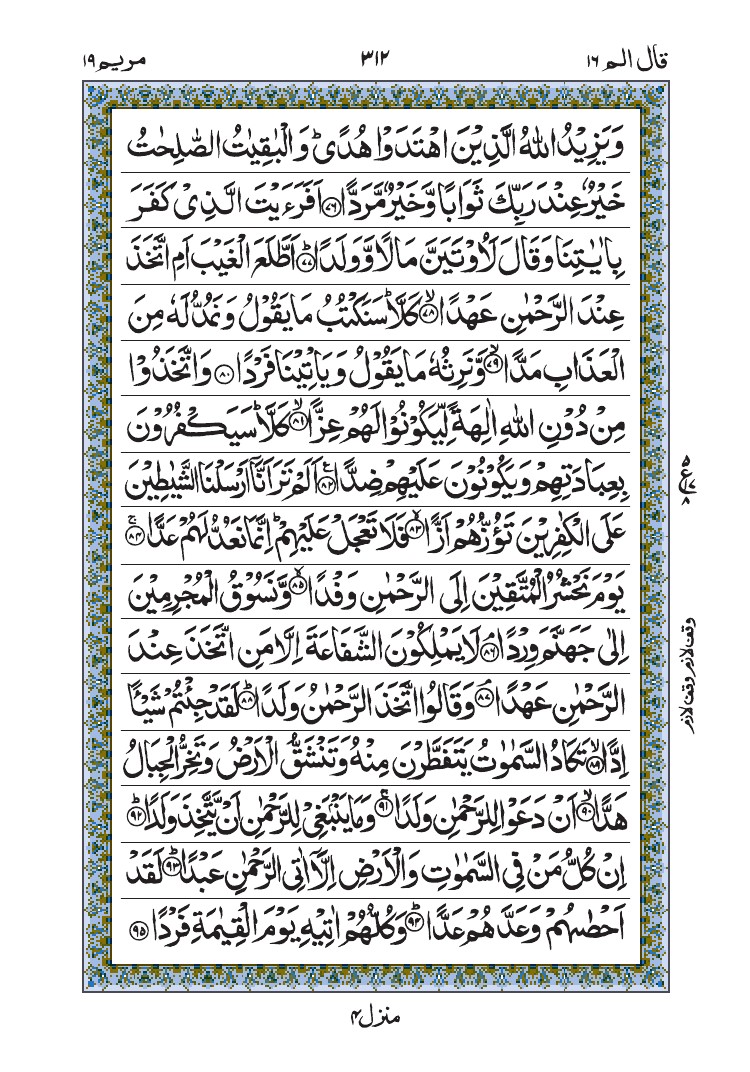 قال الم ١٦ ٣١٢ مريم ١٩
وَيَزِيْدُ اللّٰهُ الَّذِيْنَ اهْتَدَوْا هُدًى ؕ وَالْبٰقِيٰتُ الصّٰلِحٰتُ
خَيْرٌ عِنْدَ رَبِّكَ ثَوَابًا وَّخَيْرٌ مَّرَدًّا ﴿٧٦﴾ اَفَرَءَيْتَ الَّذِىْ كَفَرَ
بِاٰيٰتِنَا وَقَالَ لَاُوْتَيَنَّ مَالًا وَّوَلَدًا ؕ﴿٧٧﴾ اَطَّلَعَ الْغَيْبَ اَمِ اتَّخَذَ
عِنْدَ الرَّحْمٰنِ عَهْدًا ۙ﴿٧٨﴾ كَلَّا ؕ سَنَكْتُبُ مَا يَقُوْلُ وَنَمُدُّ لَهٗ مِنَ
الْعَذَابِ مَدًّا ۙ﴿٧٩﴾ وَّنَرِثُهٗ مَا يَقُوْلُ وَيَاْتِيْنَا فَرْدًا ﴿٨٠﴾ وَاتَّخَذُوْا
مِنْ دُوْنِ اللّٰهِ اٰلِهَةً لِّيَكُوْنُوْا لَهُمْ عِزًّا ۙ﴿٨١﴾ كَلَّا ؕ سَيَكْفُرُوْنَ
بِعِبَادَتِهِمْ وَيَكُوْنُوْنَ عَلَيْهِمْ ضِدًّا ﴿٨٢﴾ اَلَمْ تَرَ اَنَّاۤ اَرْسَلْنَا الشَّيٰطِيْنَ
عَلَى الْكٰفِرِيْنَ تَؤُزُّهُمْ اَزًّا ۙ﴿٨٣﴾ فَلَا تَعْجَلْ عَلَيْهِمْ ؕ اِنَّمَا نَعُدُّ لَهُمْ عَدًّا ۚ﴿٨٤﴾
يَوْمَ نَحْشُرُ الْمُتَّقِيْنَ اِلَى الرَّحْمٰنِ وَفْدًا ۙ﴿٨٥﴾ وَّنَسُوْقُ الْمُجْرِمِيْنَ
اِلٰى جَهَنَّمَ وِرْدًا ۘ﴿٨٦﴾ لَا يَمْلِكُوْنَ الشَّفَاعَةَ اِلَّا مَنِ اتَّخَذَ عِنْدَ
الرَّحْمٰنِ عَهْدًا ۘ﴿٨٧﴾ وَقَالُوا اتَّخَذَ الرَّحْمٰنُ وَلَدًا ؕ﴿٨٨﴾ لَقَدْ جِئْتُمْ شَيْئًا
اِدًّا ۙ﴿٨٩﴾ تَكَادُ السَّمٰوٰتُ يَتَفَطَّرْنَ مِنْهُ وَتَنْشَقُّ الْاَرْضُ وَتَخِرُّ الْجِبَالُ
هَدًّا ۙ﴿٩٠﴾ اَنْ دَعَوْا لِلرَّحْمٰنِ وَلَدًا ۚ﴿٩١﴾ وَمَا يَنْۢبَغِىْ لِلرَّحْمٰنِ اَنْ يَّتَّخِذَ وَلَدًا ؕ﴿٩٢﴾
اِنْ كُلُّ مَنْ فِى السَّمٰوٰتِ وَالْاَرْضِ اِلَّاۤ اٰتِى الرَّحْمٰنِ عَبْدًا ؕ﴿٩٣﴾ لَقَدْ
اَحْصٰىهُمْ وَعَدَّهُمْ عَدًّا ؕ﴿٩٤﴾ وَكُلُّهُمْ اٰتِيْهِ يَوْمَ الْقِيٰمَةِ فَرْدًا ﴿٩٥﴾
وقف لازم وقف لازم
منزل ٤